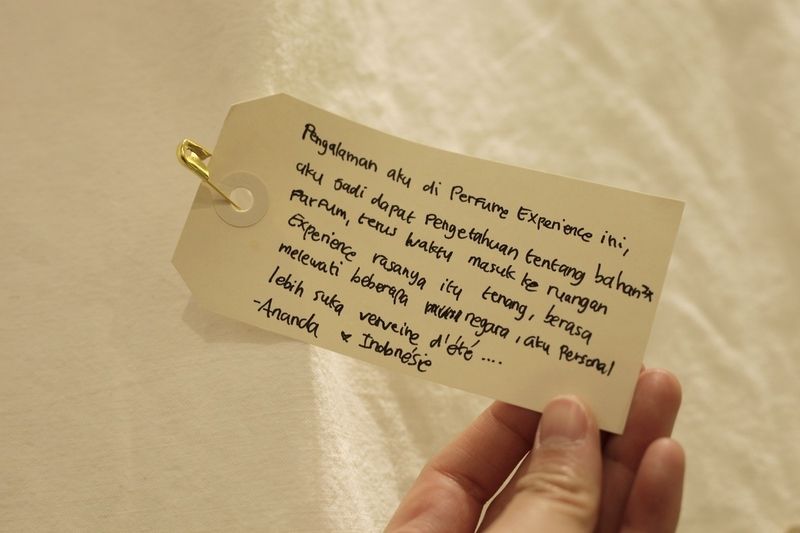 Pengalaman aku di Perfume Experience ini,
aku jadi dapat pengetahuan tentang bahan2x
Parfum, terus waktu masuk ke ruangan
Experience rasanya itu tenang, berasa
melewati beberapa negara, aku personal
lebih suka verveine d'été ....
-Ananda
Indonésie